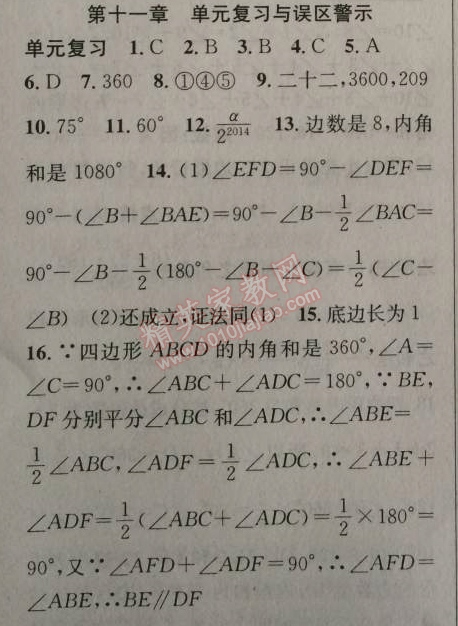 第十一章 单元复习与误区警示
单元复习 1. C 2. B 3. B 4. C 5. A
6. D 7. 360 8. ①④⑤ 9. 二十二,3600,209
10. 75° 11. 60° 12. α/2^2014 13. 边数是8,内角
和是1080° 14. (1)∠EFD=90°-∠DEF=
90°-(∠B+∠BAE)=90°-∠B-1/2∠BAC=
90°-∠B-1/2(180°-∠B-∠C)=1/2(∠C-
∠B) (2)还成立,证法同(1) 15. 底边长为1
16. ∵四边形ABCD的内角和是360°,∠A=
∠C=90°,∴∠ABC+∠ADC=180°,∵BE,
DF分别平分∠ABC和∠ADC,∴∠ABE=
1/2∠ABC,∠ADF=1/2∠ADC,∴∠ABE+
∠ADF=1/2(∠ABC+∠ADC)=1/2×180°=
90°,又∵∠AFD+∠ADF=90°,∴∠AFD=
∠ABE,∴BE∥DF
精英家教网
www.1010jiajiao.com